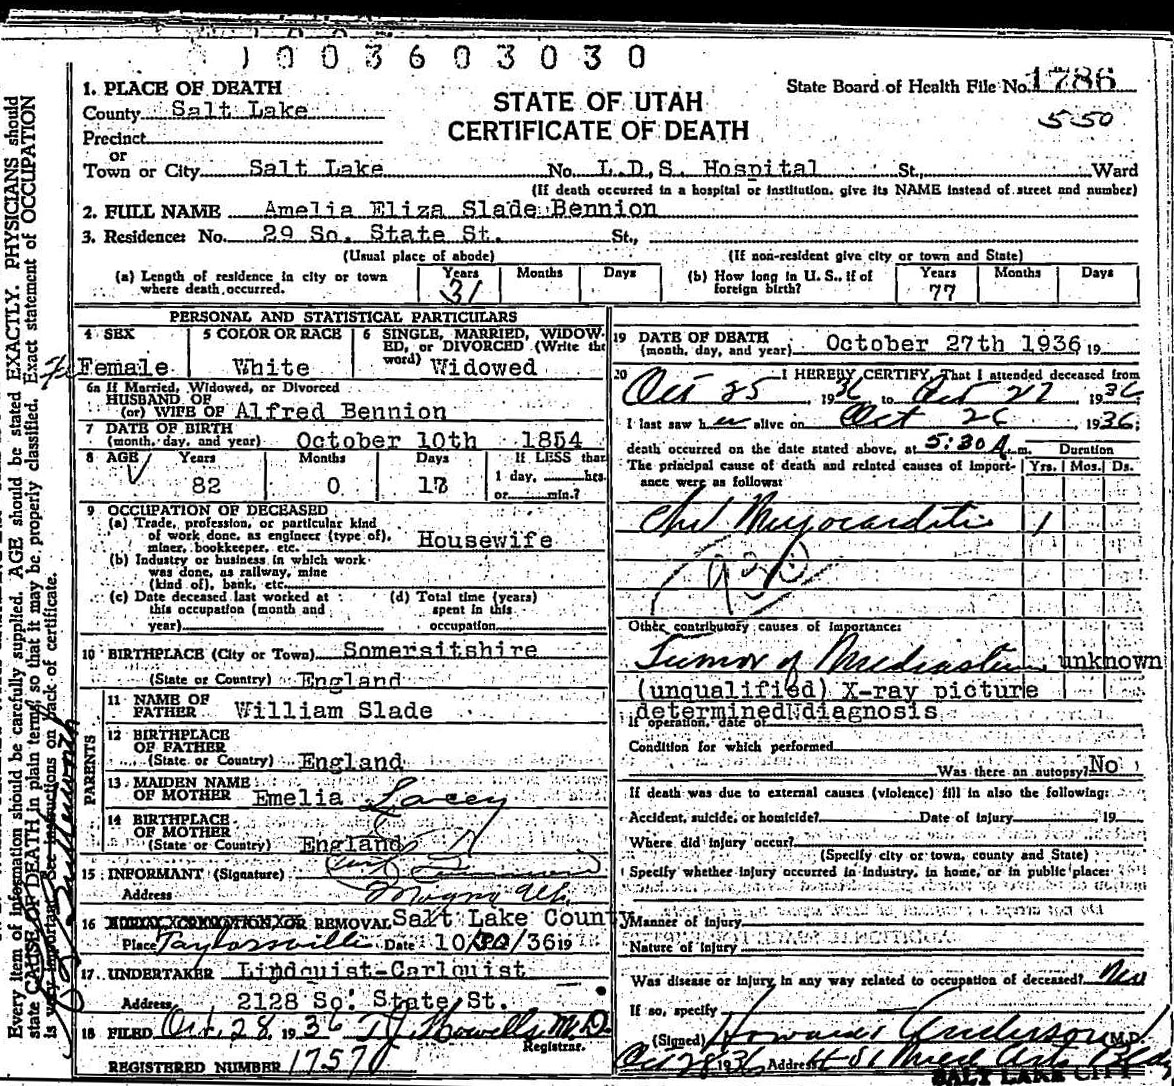 1003603030
1. PLACE OF DEATH
State Board of Health File No. 1786
County Salt Lake
STATE OF UTAH
550
Precinct
CERTIFICATE OF DEATH
or
Town or City Salt Lake No. L.D.S. Hospital St., Ward
(If death occurred in a hospital or institution, give its NAME instead of street and number)
2. FULL NAME Amelia Eliza Slade Bennion
3. Residence: No. 29 So. State St. St.,
(Usual place of abode) (If non-resident give city or town and State)
(a) Length of residence in city or town where death occurred. Years 31 Months Days
(b) How long in U. S., if of foreign birth? Years 77 Months Days
PERSONAL AND STATISTICAL PARTICULARS
4 SEX Female
5 COLOR OR RACE White
6 SINGLE, MARRIED, WIDOWED, or DIVORCED (Write the word) Widowed
6a If Married, Widowed, or Divorced
HUSBAND OF
(or) WIFE OF Alfred Bennion
7 DATE OF BIRTH
(month, day, and year) October 10th 1854
8 AGE Years Months Days If LESS than
82 0 17 1 day, hrs.
or min.?
9 OCCUPATION OF DECEASED
(a) Trade, profession, or particular kind
of work done, as engineer (type of),
miner, bookkeeper, etc. Housewife
(b) Industry or business in which work
was done, as railway, mine
(kind of), bank, etc.
(c) Date deceased last worked at
this occupation (month and
year)
(d) Total time (years)
spent in this
occupation
10 BIRTHPLACE (City or Town) Somersitshire
(State or Country) England
PARENTS
11 NAME OF
FATHER William Slade
12 BIRTHPLACE
OF FATHER
(State or Country) England
13 MAIDEN NAME
OF MOTHER Emelia Lacey
14 BIRTHPLACE
OF MOTHER
(State or Country) England
15 INFORMANT (Signature)
Address Magna Ut.
16 BURIAL, CREMATION, OR REMOVAL Salt Lake County
Place Taylorsville Date 10/30/36 19
17 UNDERTAKER Lindquist-Carlquist
Address 2128 So. State St.
18 FILED Oct. 28, 1936 T.J. Howells, M.D.
Registrar.
REGISTERED NUMBER 1757
19 DATE OF DEATH
(month, day, and year) October 27th 1936 19
20 I HEREBY CERTIFY, That I attended deceased from
Oct 25, 1936, to Oct 27, 1936;
I last saw her alive on Oct 26 1936;
death occurred on the date stated above, at 5:30 A. m.
Duration
The principal cause of death and related causes of importance were as follows: Yrs. Mos. Ds.
Chr Myocarditis 1
930
Other contributory causes of importance:
Tumor of Mediastinum unknown
(unqualified) X-ray picture
determined diagnosis
If operation, date of
Condition for which performed
Was there an autopsy? No
If death was due to external causes (violence) fill in also the following:
Accident, suicide, or homicide? Date of injury 19
Where did injury occur?
(Specify city or town, county and State)
Specify whether injury occurred in industry, in home, or in public place:
Manner of injury
Nature of injury
Was disease or injury in any way related to occupation of deceased? No
If so, specify
(Signed) Howard Anderson M.D.
Oct 28 1936 Address
SALT LAKE CITY
Every item of information should be carefully supplied. AGE should be stated EXACTLY. PHYSICIANS should
state CAUSE OF DEATH in plain terms, so that it may be properly classified. Exact statement of OCCUPATION
is very important. See instructions on back of certificate.